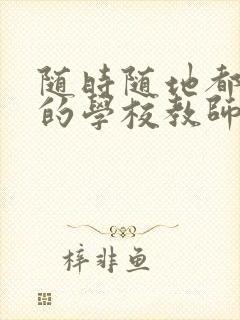 随時随地都
的學校教師
梓非鱼